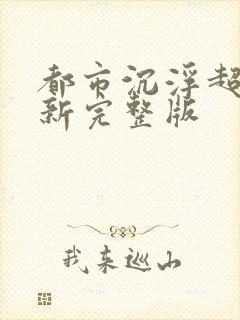 都市沉浮超
新完整版
我来巡山